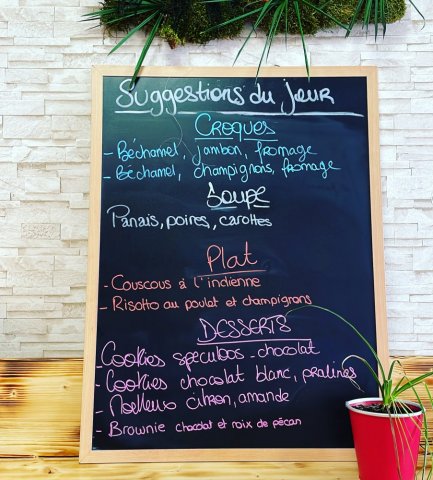 Suggestions du jour
Croques
- Béchamel, jambon, fromage
- Béchamel, champignons, fromage
Soupe
Panais, poires, carottes
Plat
- Couscous à l'indienne
- Risotto au poulat et champignons
DESSERTS
- Cookies spéculoos - chocolat
- Cookies chocolat blanc, pralines
- Moelleux citron, amande
- Brownie chocolat et noix de pécan